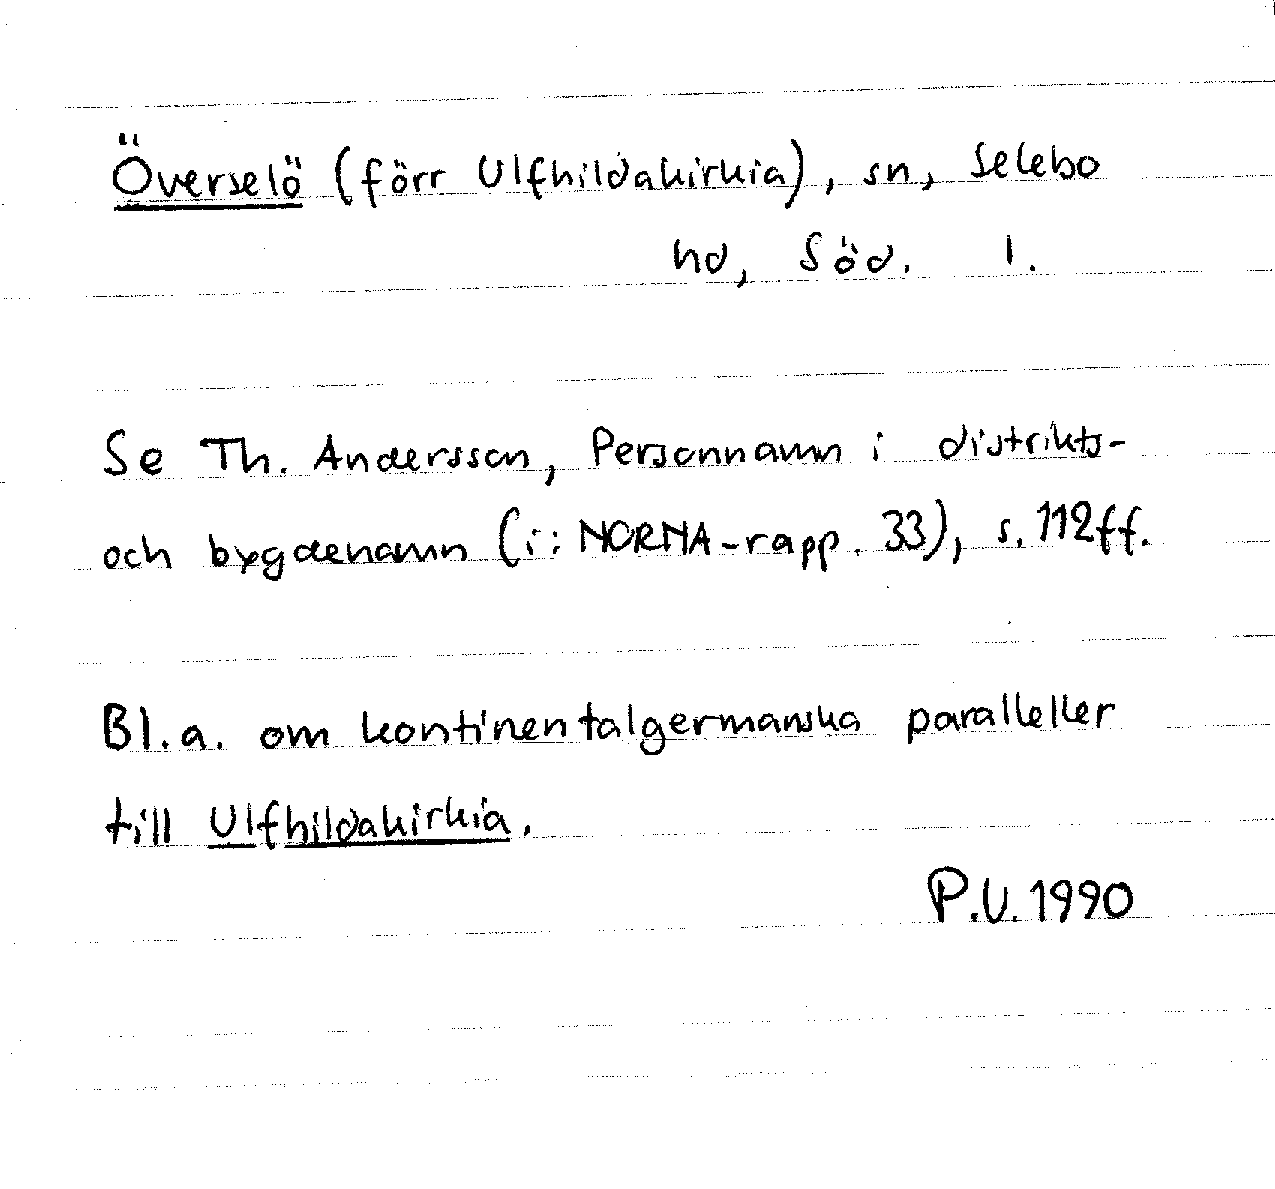 Överselö (förr Ulfhildakirkia), sn, Selebo
hd, Söd. l.
Se Th. Andersson, Personnamn i distrikts-
och bygdenamn (i: NORNA-rapp. 33), s. 112ff.
Bl.a. om kontinentalgermanska paralleller
till Ulfhildakirkia.
P.U. 1990